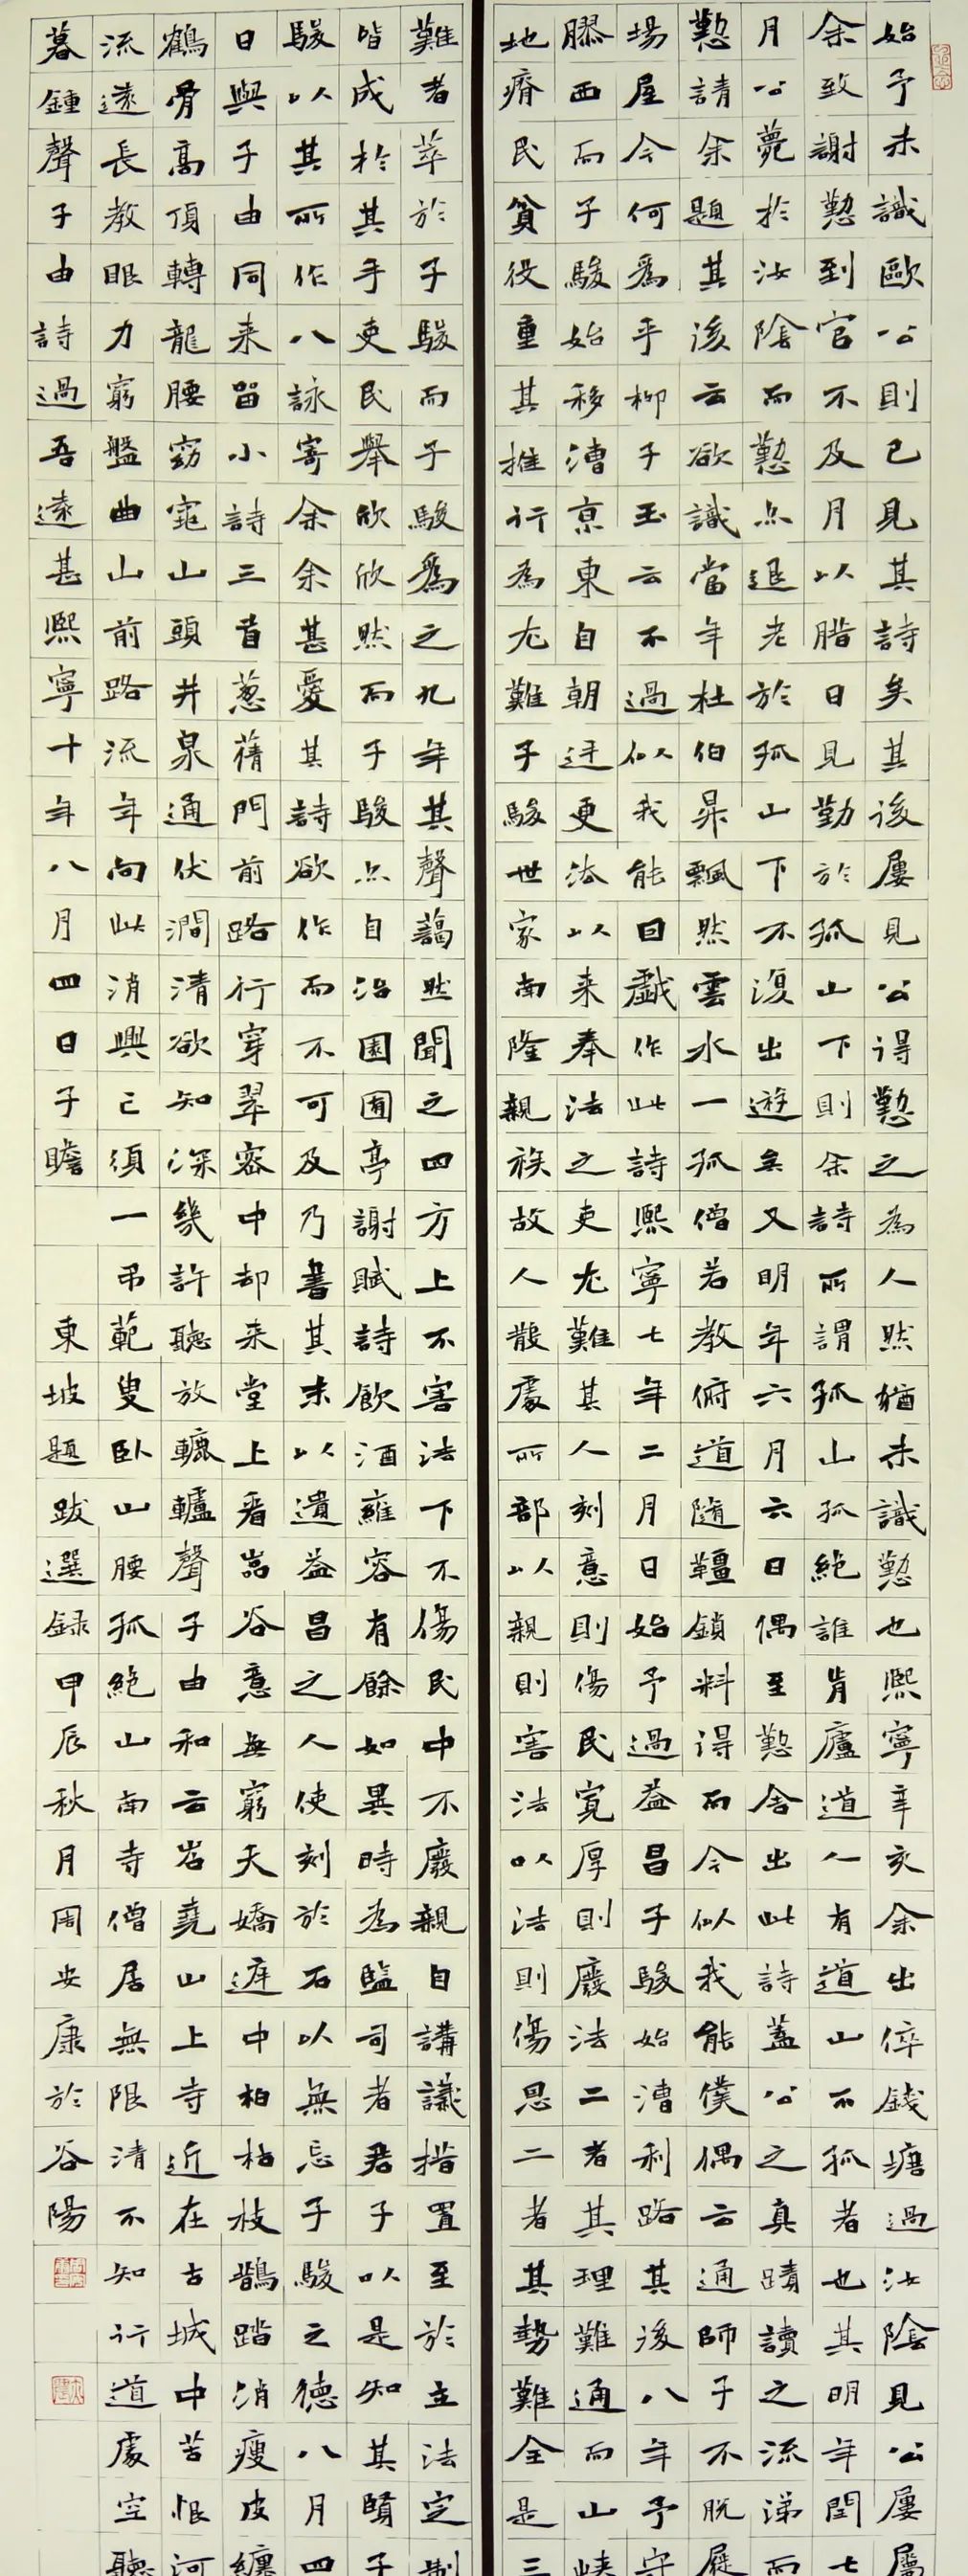 始予未識歐公則已見其詩矣其後屢見公得懃之為人然猶未識懃也熙寧辛亥余出倅錢塘過汝陰見公屢屬
余致謝懃到官不及月以腊日見勤於孤山下則余詩所謂孤山孤絕誰肯廬道人有道山不孤者也其明年閏七
月公薨於汝陰而懃亦退老於孤山下不復出遊矣又明年六月六日偶至懃舍出此詩蓋公之真蹟讀之流涕而
懃請余題其後云欲識當年杜伯昇飄然雲水一孤僧若教俯道隨韁鎖料得而今似我能僕偶云通師子不脫屣
場屋今何為乎柳子玉云不過似我能因戲作此詩熙寧七年二月日始予過益昌子駿始漕利路其後八年予守
膠西而子駿始移漕京東自朝廷更法以来奉法之吏尤難其人刻意則傷民寬厚則廢法二者其理難通而山峽
地瘠民貧役重其推行為尤難子駿世家南隆親族故人散處所部以親則害法以法則傷恩二者其勢難全是三
難者萃於子駿而子駿為之九年其聲藹然聞之四方上不害法下不傷民中不廢親自講議措置至於立法定制
皆成於其手吏民舉欣欣然而子駿亦自治園圃亭謝賦詩飲酒雍容有餘如異時為監司者君子以是知其賢子
駿以其所作八詠寄余余甚愛其詩欲作而不可及乃書其末以遺益昌之人使刻於石以無忘子駿之德八月四
日與子由同来留小詩三首蔥蒨門前路行穿翠密中却来堂上看嵓谷意無窮夭嬌庭中柏枯枝鵲踏消瘦皮纏
鶴骨高頂轉龍腰窈窕山頭井泉通伏澗清欲知深幾許聽放轆轤聲子由和云岩堯山上寺近在古城中苦恨河
流遠長教眼力窮盤曲山前路流年向此消興亡須一弔範叟臥山腰孤絕山南寺僧居無限清不知行道處空聽
暮鍾聲子由詩過吾遠甚熙寧十年八月四日子瞻 東坡題跋選録甲辰秋月周安康於谷陽